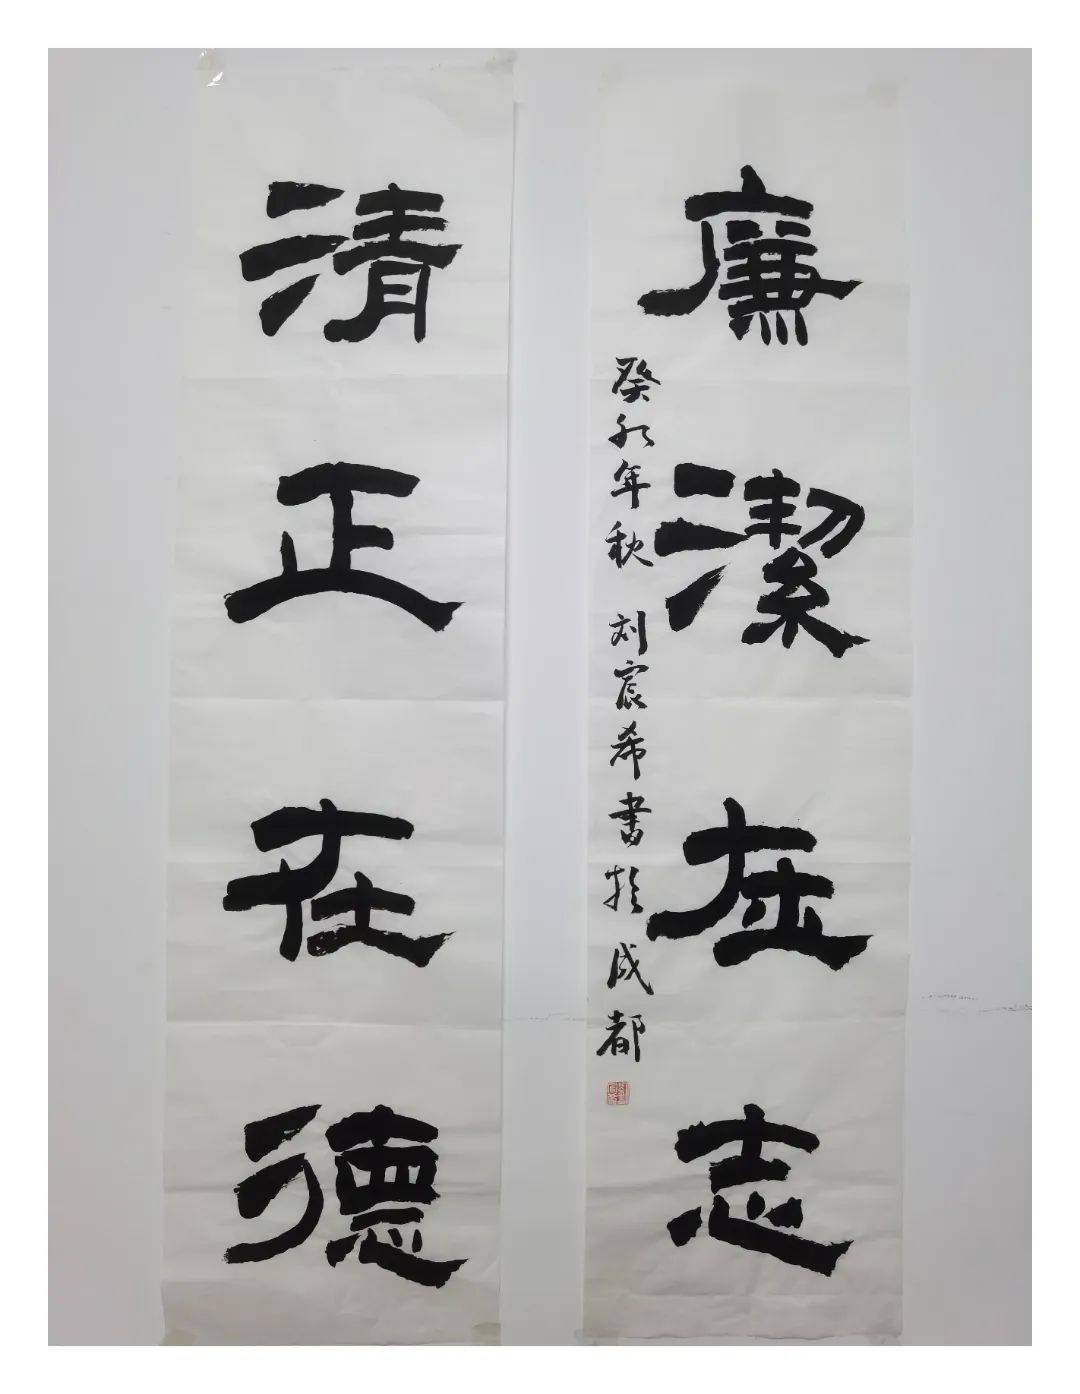 清正在德
廉潔在志
癸卯年秋 刘宸希書於成都